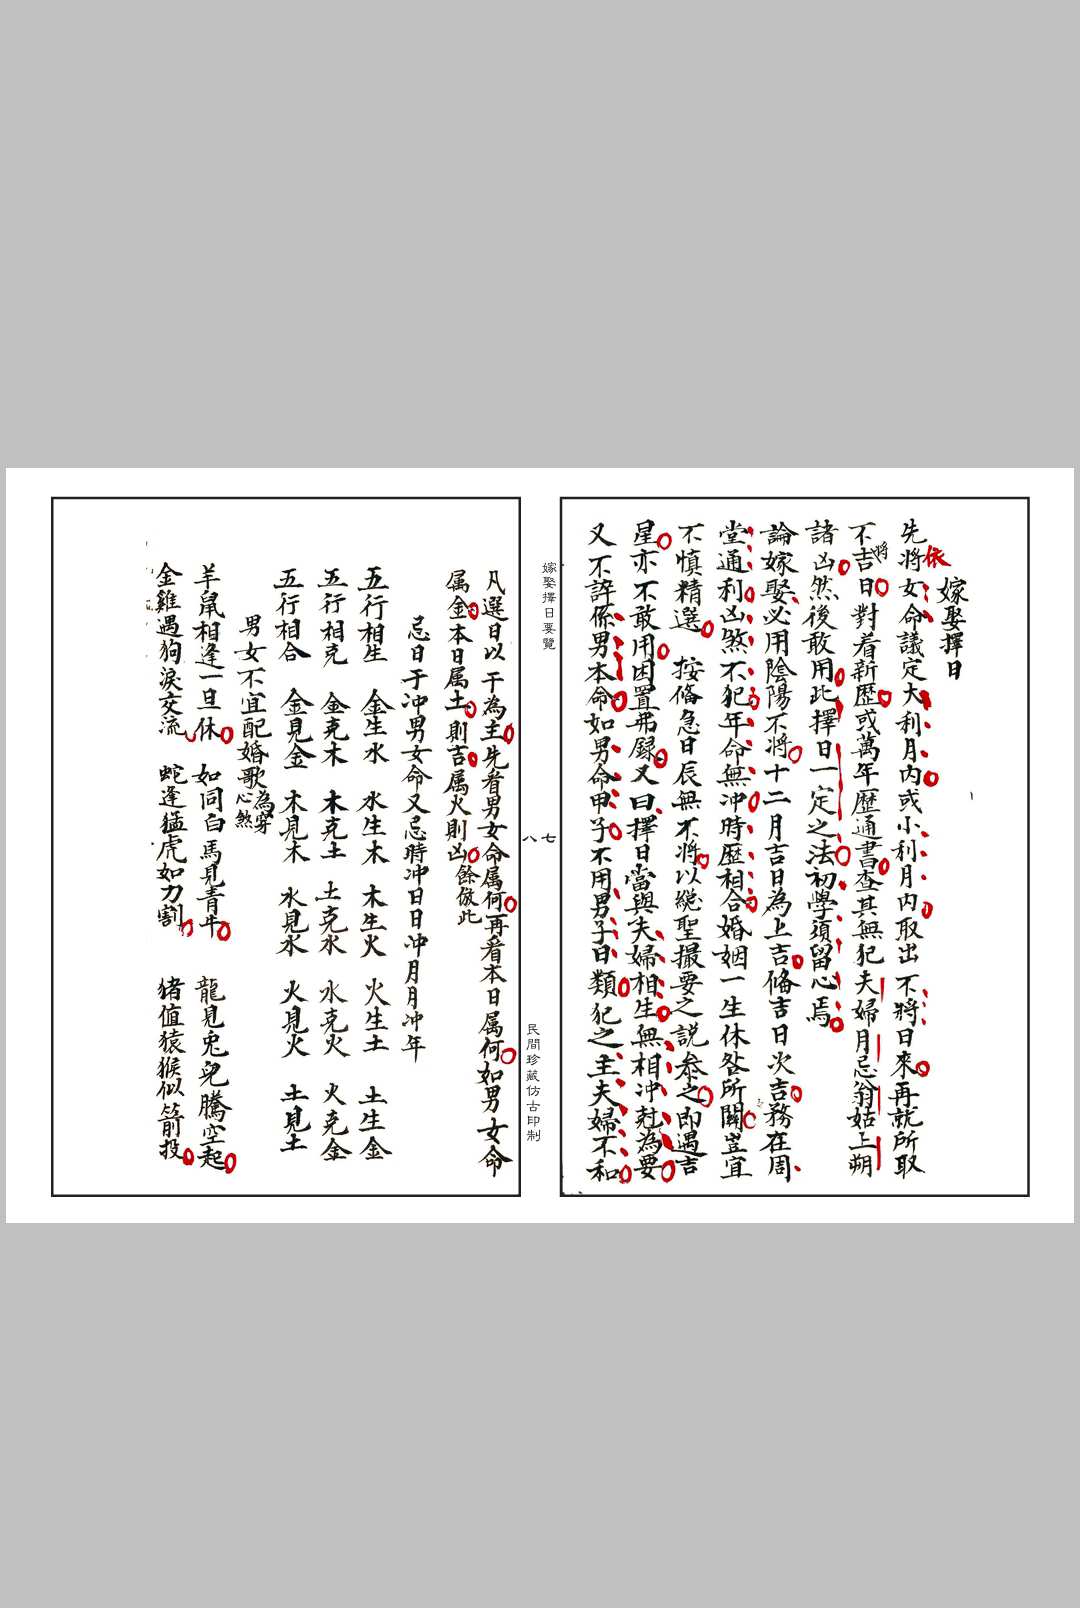 嫁娶擇日
依
先將女命議定大利月內或小利月內取出不將日來再就所取
不吉日對着新歷或萬年歷通書查其無犯夫婦月忌翁姑上朔
將
諸凶然後敢用此擇日一定之法初學須留心焉
論嫁娶必用陰陽不將十二月吉日為上吉俻吉日次吉務在周
堂通利凶煞不犯年命無冲時歷相合婚姻一生休咎所關豈宜
不慎精選 按俻急日辰無不將以縂聖撮要之説叅之即遇吉
星亦不敢用困置弗録又曰擇日當與夫婦相生無相冲尅為要
又不誶係男本命如男命甲子不用男子日類犯之主夫婦不和
嫁娶擇日要覽
七
八
民間珍藏仿古印制
凡選日以干為主先看男女命属何再看本日属何如男女命
属金本日属土則吉属火則凶餘倣此
忌日于冲男女命又忌時冲日日冲月月冲年
五行相生 金生水 水生木 木生火 火生土 土生金
五行相克 金克木 木克土 土克水 水克火 火克金
五行相合 金見金 木見木 水見水 火見火 土見土
男女不宜配婚歌為穿心煞
羊鼠相逢一旦休 如同白馬見青牛 龍見兎兒騰空起
金雞遇狗淚交流 蛇逢猛虎如刀割 猪值猿猴似箭投